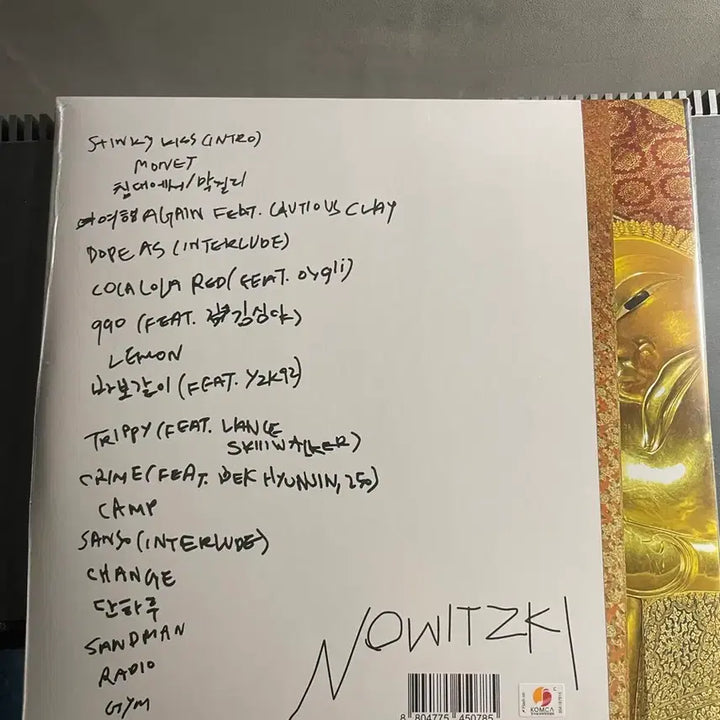 STINKY KISS (INTRO)
MONET
침대에서/막걸리
여행 AGAIN FEAT. CAUTIOUS CLAY
DOPE AS (INTERLUDE)
COLA COLA RED (FEAT. oygli)
990 (FEAT. 김심야)
LEMON
바보같이 (FEAT. Y2K92)
TRIPPY (FEAT. LANCE
SKIIIWALKER)
CRIME (FEAT. BEK HYUNJIN, 250)
CAMP
SANSO (INTERLUDE)
CHANGE
단하루
SANDMAN
RADIO
GYM
NOWITZKI
8 804775 450785
KOMCA